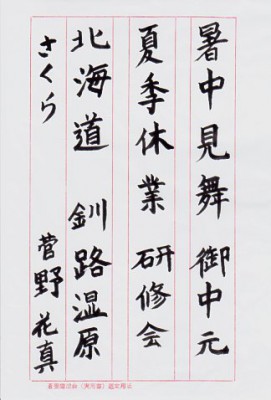 暑中見舞 御中元
夏季休業 研修会
北海道 釧路湿原
さくら 菅野花真